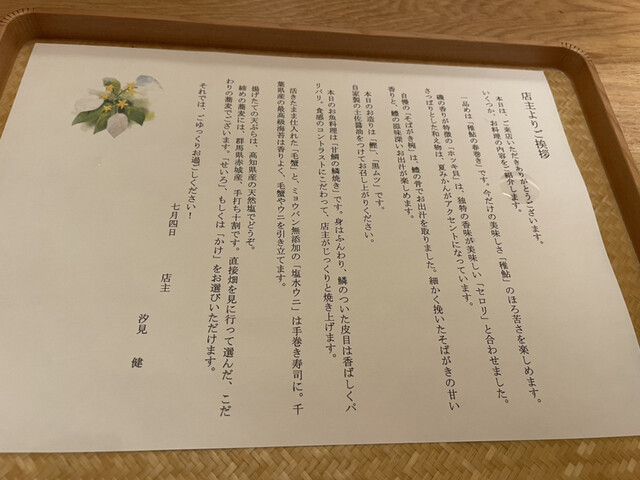 店主よりご挨拶
本日は、ご来店いただきありがとうございます。
いくつか、お料理の内容をご紹介します。
一品めは「稚鮎の春巻き」です。今だけの美味しさ「稚鮎」のほろ苦さを楽しめます。
磯の香りが特徴の「ホッキ貝」は、独特の香味が美味しい「セロリ」と合わせました。
さっぱりとした和え物は、夏みかんがアクセントになっています。
自慢の「そばがき椀」は、鱧の骨でお出汁を取りました。細かく挽いたそばがきの甘い
香りと、鱧の滋味深いお出汁が楽しめます。
本日のお造りは「鰹」、「黒ムツ」です。
自家製の土佐醤油をつけてお召し上がりください。
本日のお魚料理は「甘鯛の鱗焼き」です。身はふんわり、鱗のついた皮目は香ばしくパ
リパリ、食感のコントラストにこだわって、店主がじっくりと焼き上げます。
活きたまま仕入れた「毛蟹」と、ミョウバン無添加の「塩水ウニ」は手巻き寿司に。千
葉県産の最高級海苔は香りよく、毛蟹やウニを引き立てます。
揚げたての天ぷらは、高知県産の天然塩でどうぞ。
締めの蕎麦には、群馬県赤城産、手打ち十割です。直接畑を見に行って選んだ、こだ
わりの蕎麦でございます。「せいろ」、もしくは「かけ」をお選びいただけます。
それでは、ごゆっくりお過ごしください！
七月四日
店主　汐見　健